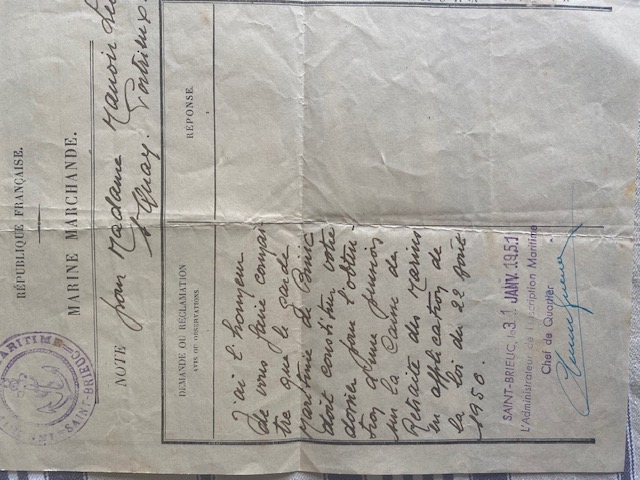 RÉPUBLIQUE FRANÇAISE.
MARINE MARCHANDE.
MARITIME
SAINT-BRIEUC
NOTE pour Madame Manoir
St Quay. Portrieux.
DEMANDE OU RÉCLAMATION
AVIS OU OBSERVATIONS
RÉPONSE.
J'ai l'honneur
de vous faire connaî
tre que le garde
Maritime de Binic
doit constituer votre
dossier pour l'obten
tion d'une pension
sur la Caisse de
Retraite des Marins
en application de
la loi du 22 Août
1950.
SAINT-BRIEUC, le 31 JANV. 1951
L'Administrateur de l'Inscription Maritime
Chef de Quartier